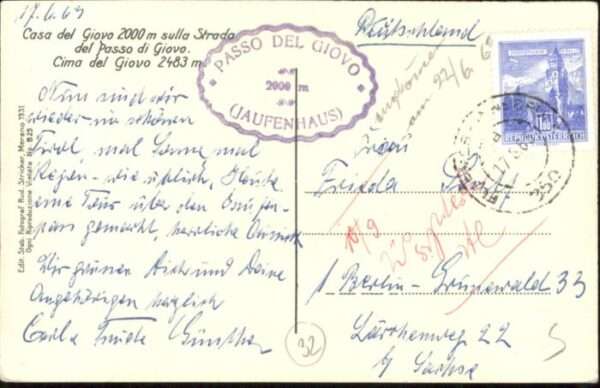 17.6.63
Casa del Giovo 2000 m sulla Strada
del Passo di Giovo.
Cima del Giovo 2483 m
PASSO DEL GIOVO
2000 m
(JAUFENHAUS)
Deutschland
am 22/6
REPUBLIK ÖSTERREICH
Nun sind wir
wieder im schönen
Tirol, mal Sonne, mal
Regen - wie üblich. Heute
eine Tour über den Jaufen-
pass gemacht, herrliche
Wir grüssen Dich und Deine
Angehörigen herzlich
Carla Günther
Frau
Frieda
1 Berlin-Grunewald 33
Lärchenweg 22
b/
10/9
32
Edit. Stab. Fotograf. Rud. Stricher, Merano 1931
Ogni Riproduzione Vietata No. 825